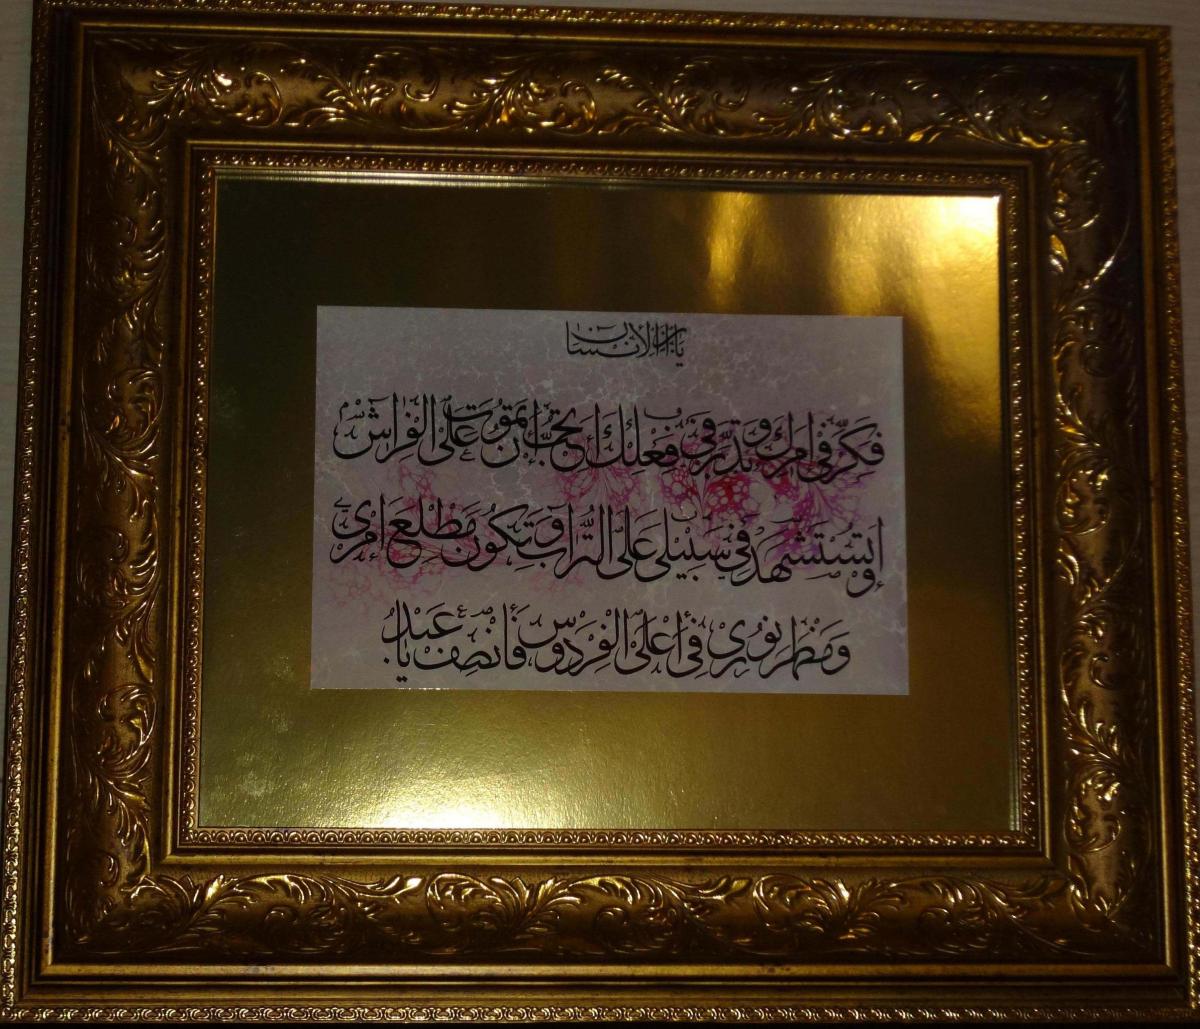 يا ابن الإنسان
فكر في امرك و تدبر في فعلك أ تحب ان تموت على الفراش
او تستشهد في سبيلي على التراب و تكون مطلع امري
و مظهر نوري في أعلى الفردوس فأنصف يا عبد